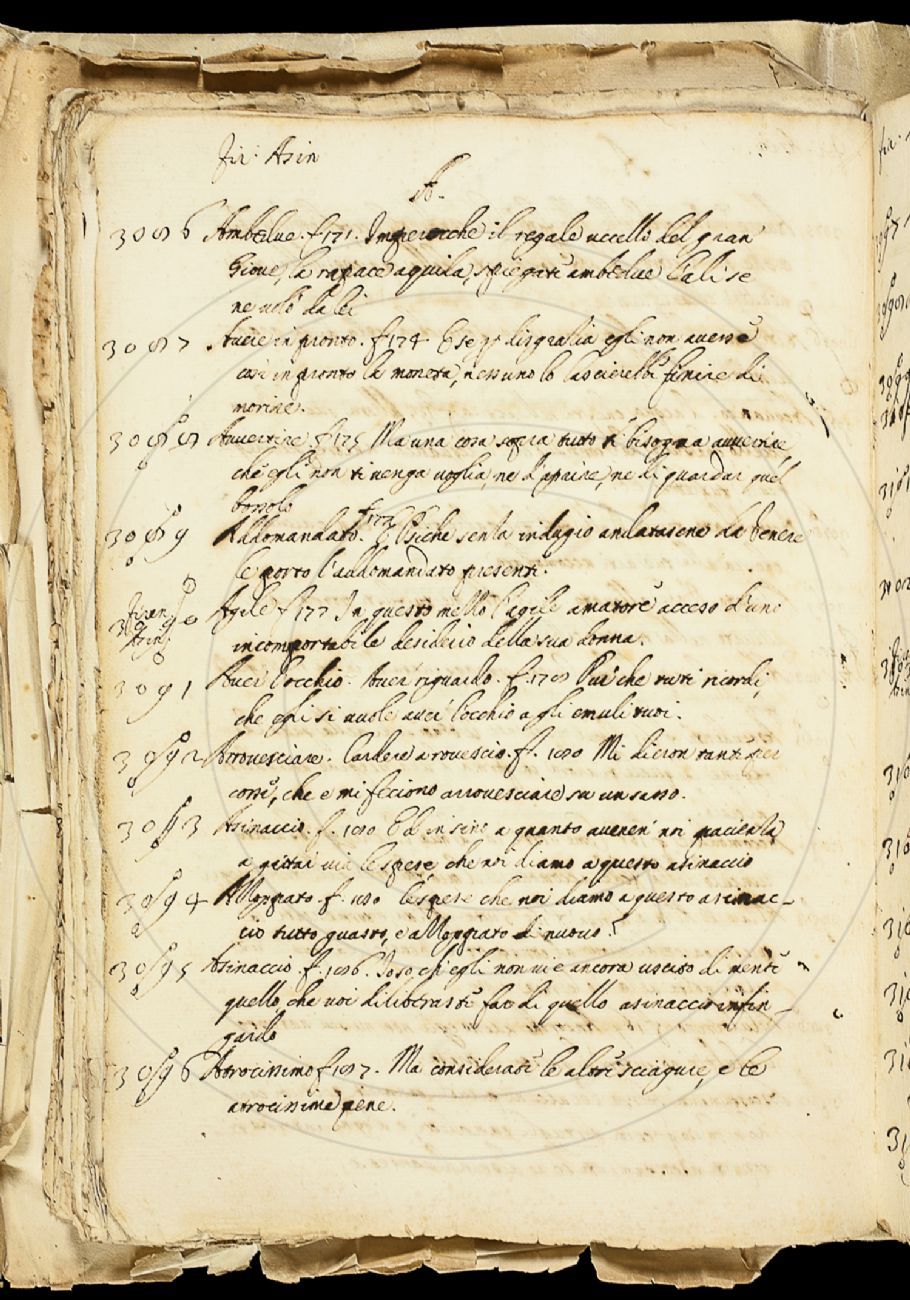 Fir: Asin
A.
3086 Ambedue. f. 171. Imperocche il regale uccello del gran
Giove, la rapace aquila, spiegate ambedue l'ali se
ne volò da lei
3087 Avere in pronto. f. 174 E se per disgrazia egli non avesse
così in pronto la moneta, nessuno lo lascierebbe finire di
morire.
3088 Avvertire f. 175 Ma una cosa sopra tutto ti bisogna avvertire
che egli non ti venga voglia, ne d'aprire, ne di guardar quel
bossolo
3089 Addomandato. f. 177 E Psiche senza indugio andatasene da Venere
le portò l'addomandato presente.
Firen. Asin. 3090 Agile f. 177 In questo mezzo l'agile amatore acceso d'uno
incomportabile desiderio della sua donna.
3091 Aver l'occhio. Aver riguardo. f. 178 Pur che tu ti ricordi,
che egli si vuole aver l'occhio a gli emuli tuoi.
3092 Arrovesciare. Cardere a rovescio. f. 180 Mi dieron tante per
corse, che e mi feciono arrovesciare su un sasso.
3093 Asinaccio. f. 180 Ed insino a quanto averem noi pacienza
a gittar via le spese, che noi diamo a questo asinaccio
3094 Azzoppiato f. 180 le spese che noi diamo a questo asinac-
cio tutto guasto, e azzoppiato di nuovo?
3095 Asinaccio f. 186. Io so ch'egli non vi è ancora uscito di mente
quello, che voi diliberaste far di quello asinaccio infin-
gardo
3096 Atrocissimo f. 187. Ma considerate le altre sciagure, e le
atrocissime pene.